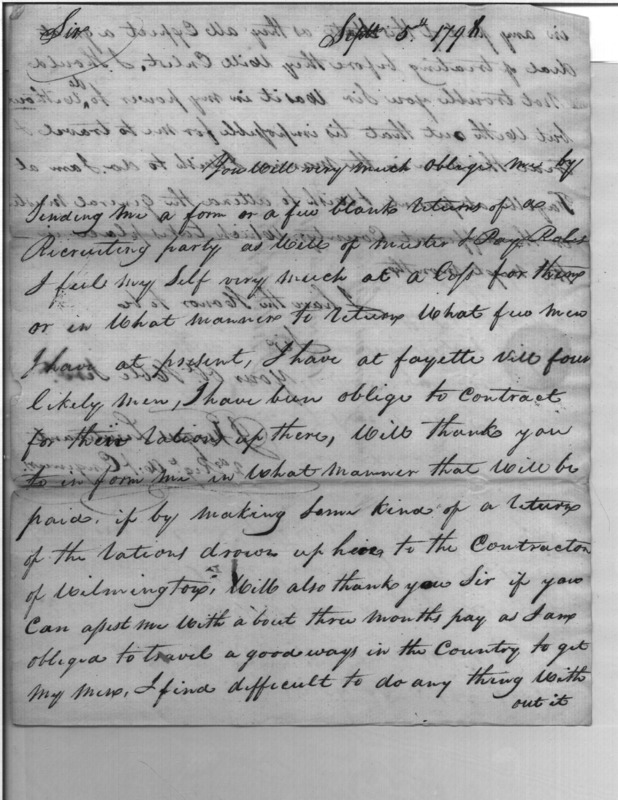 Sir
Septr 5th 1798
You Will very much oblige me by
Sending me a form or a few blank returns of a
Recruiting party as Well of muster & Pay Roles
I feel my Self very much at a Loss for them
or in What manner to return What few men
I have at present, I have at fayette vill four
likely men, I have been oblige to Contract
for their rations up there, Will thank you
to in form me in What manner that Will be
paid. if by making Some kind of a return
of the rations drown up here to the Contractor
of Wilmington, Will also thank you Sir if you
Can assist me With about three months pay as I am
obliged to travel a good ways in the Country to get
my men, I find difficult to do any thing With
out it